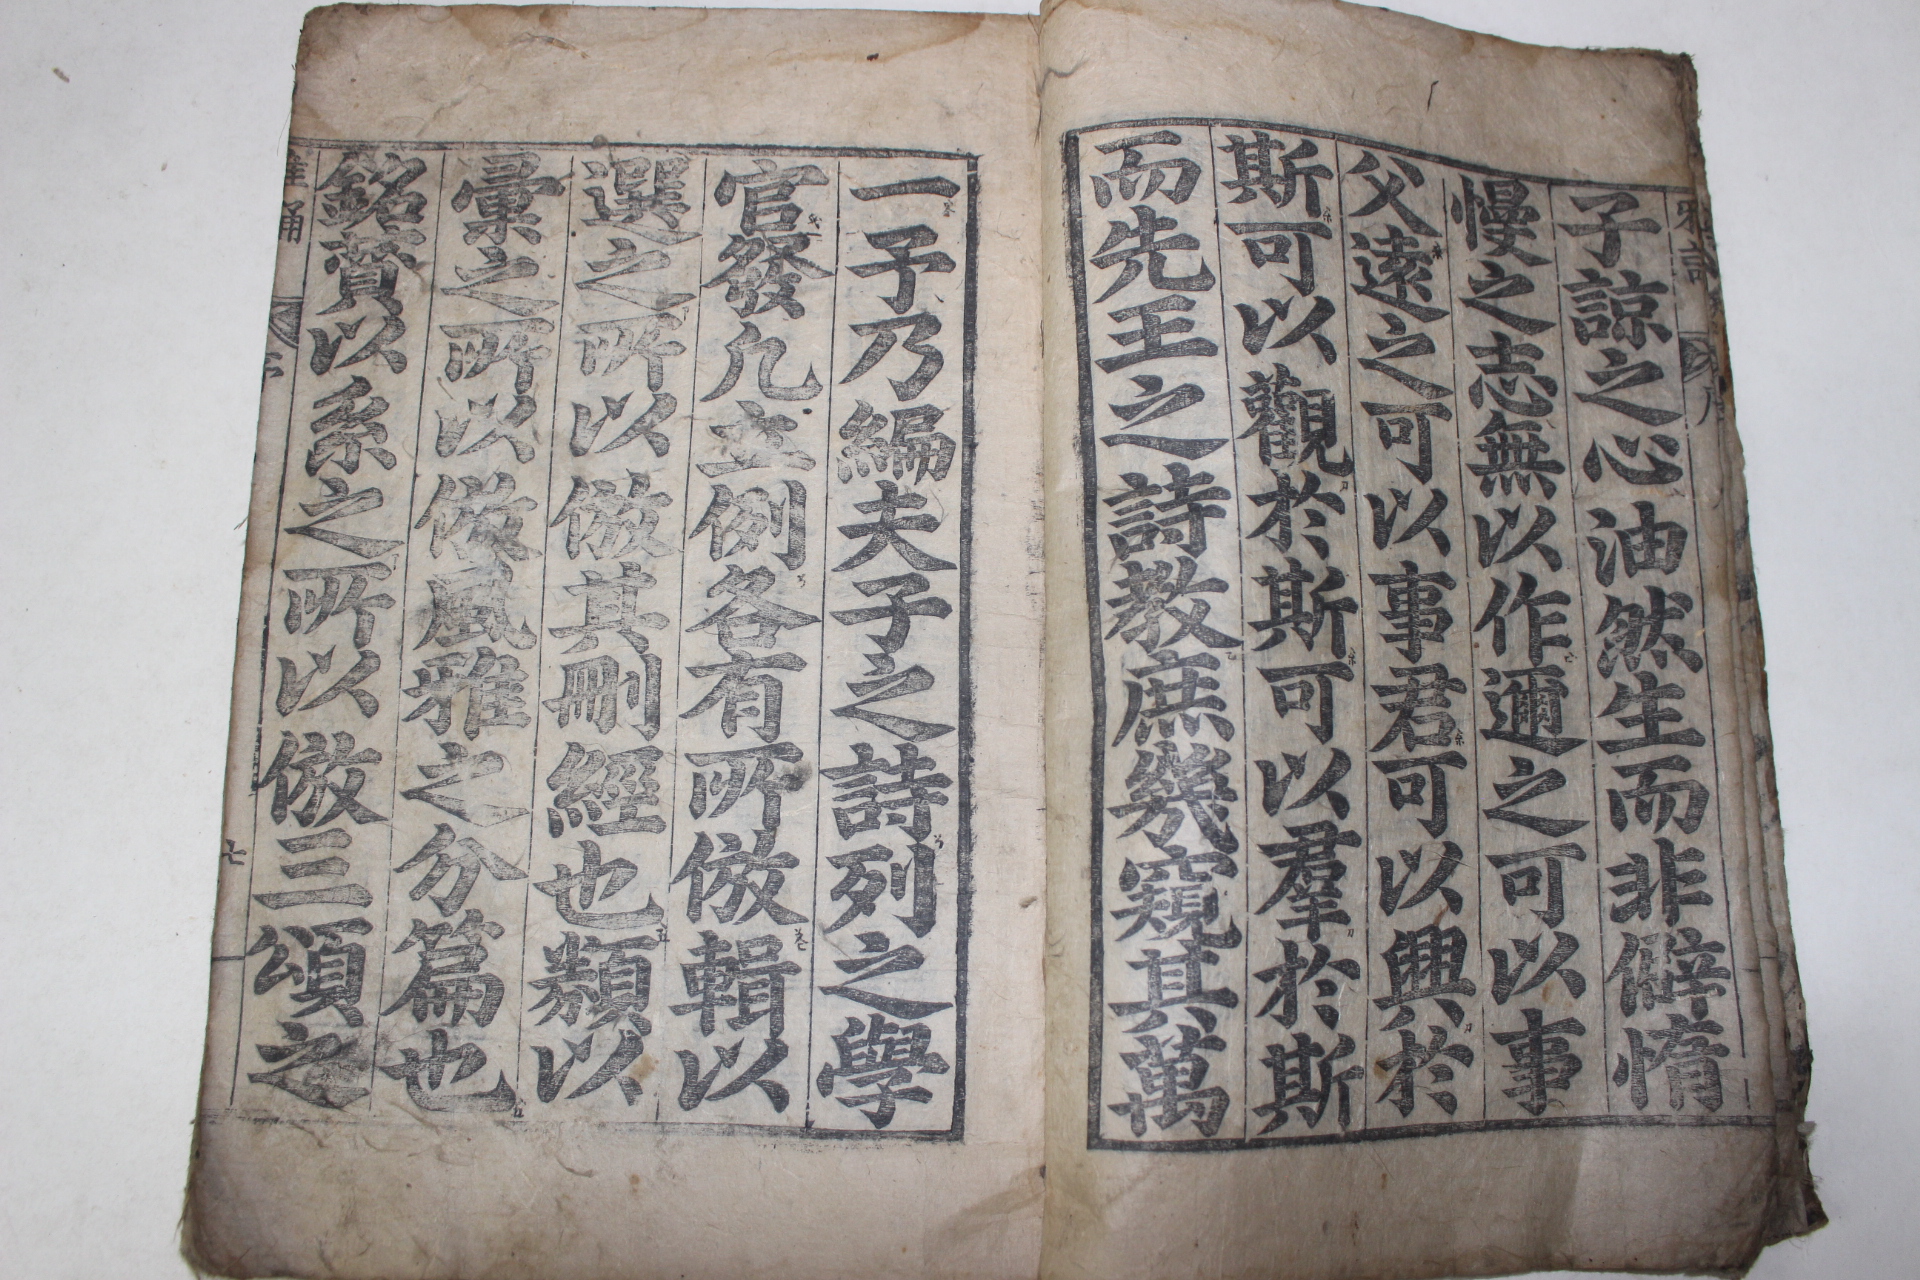 子諒之心油然生而非僻惰
慢之志無以作邇之可以事
父遠之可以事君可以興於
斯可以觀於斯可以羣於斯
而先王之詩教庶幾窺其萬
一予乃編夫子之詩列之學
官發凡立例各有所倣輯以
選之所以倣其刪經也類以
彙之所以倣風雅之分篇也
銘賛以系之所以倣三頌之
誦
七